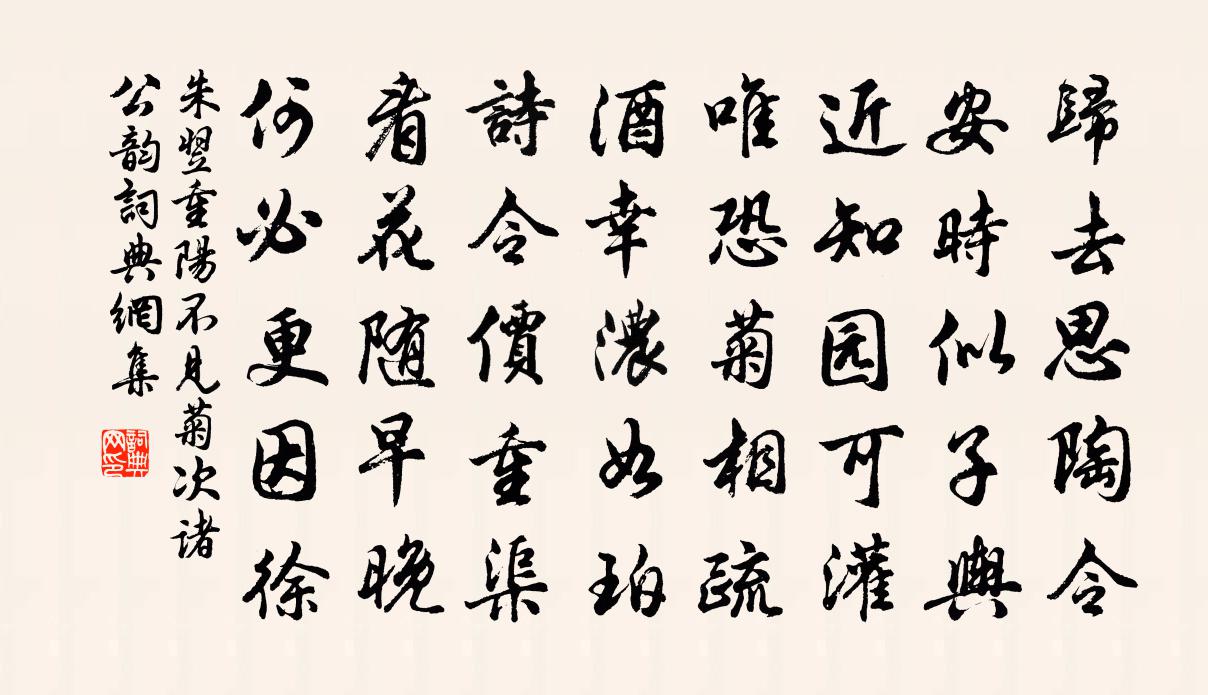 歸去思陶令
安時似子輿
近知园可灌
唯恐菊相疏
酒幸濃如珀
詩令價重渠
看花随早晚
何必更因徐
朱翌重陽不見菊次诸
公韵詞典網集
詞典
网印